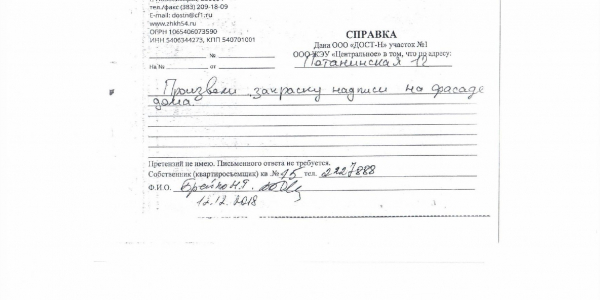 тел./факс (383) 209-18-09
E-mail: dostn@cf1.ru
www.zhkh54.ru
ОГРН 1065406073590
ИНН 5406344273, КПП 540701001
№
На № от
СПРАВКА
Дана ООО «ДОСТ-Н» участок №1
ООО ЖЭУ «Центральное» в том, что по адресу:
Потанинская 12
Произвели закраску надписи на фасаде
дома
Претензий не имею. Письменного ответа не требуется.
Собственник (квартиросъемщик) кв. № 15 тел. 2227888
Ф.И.О.
12.12.2018